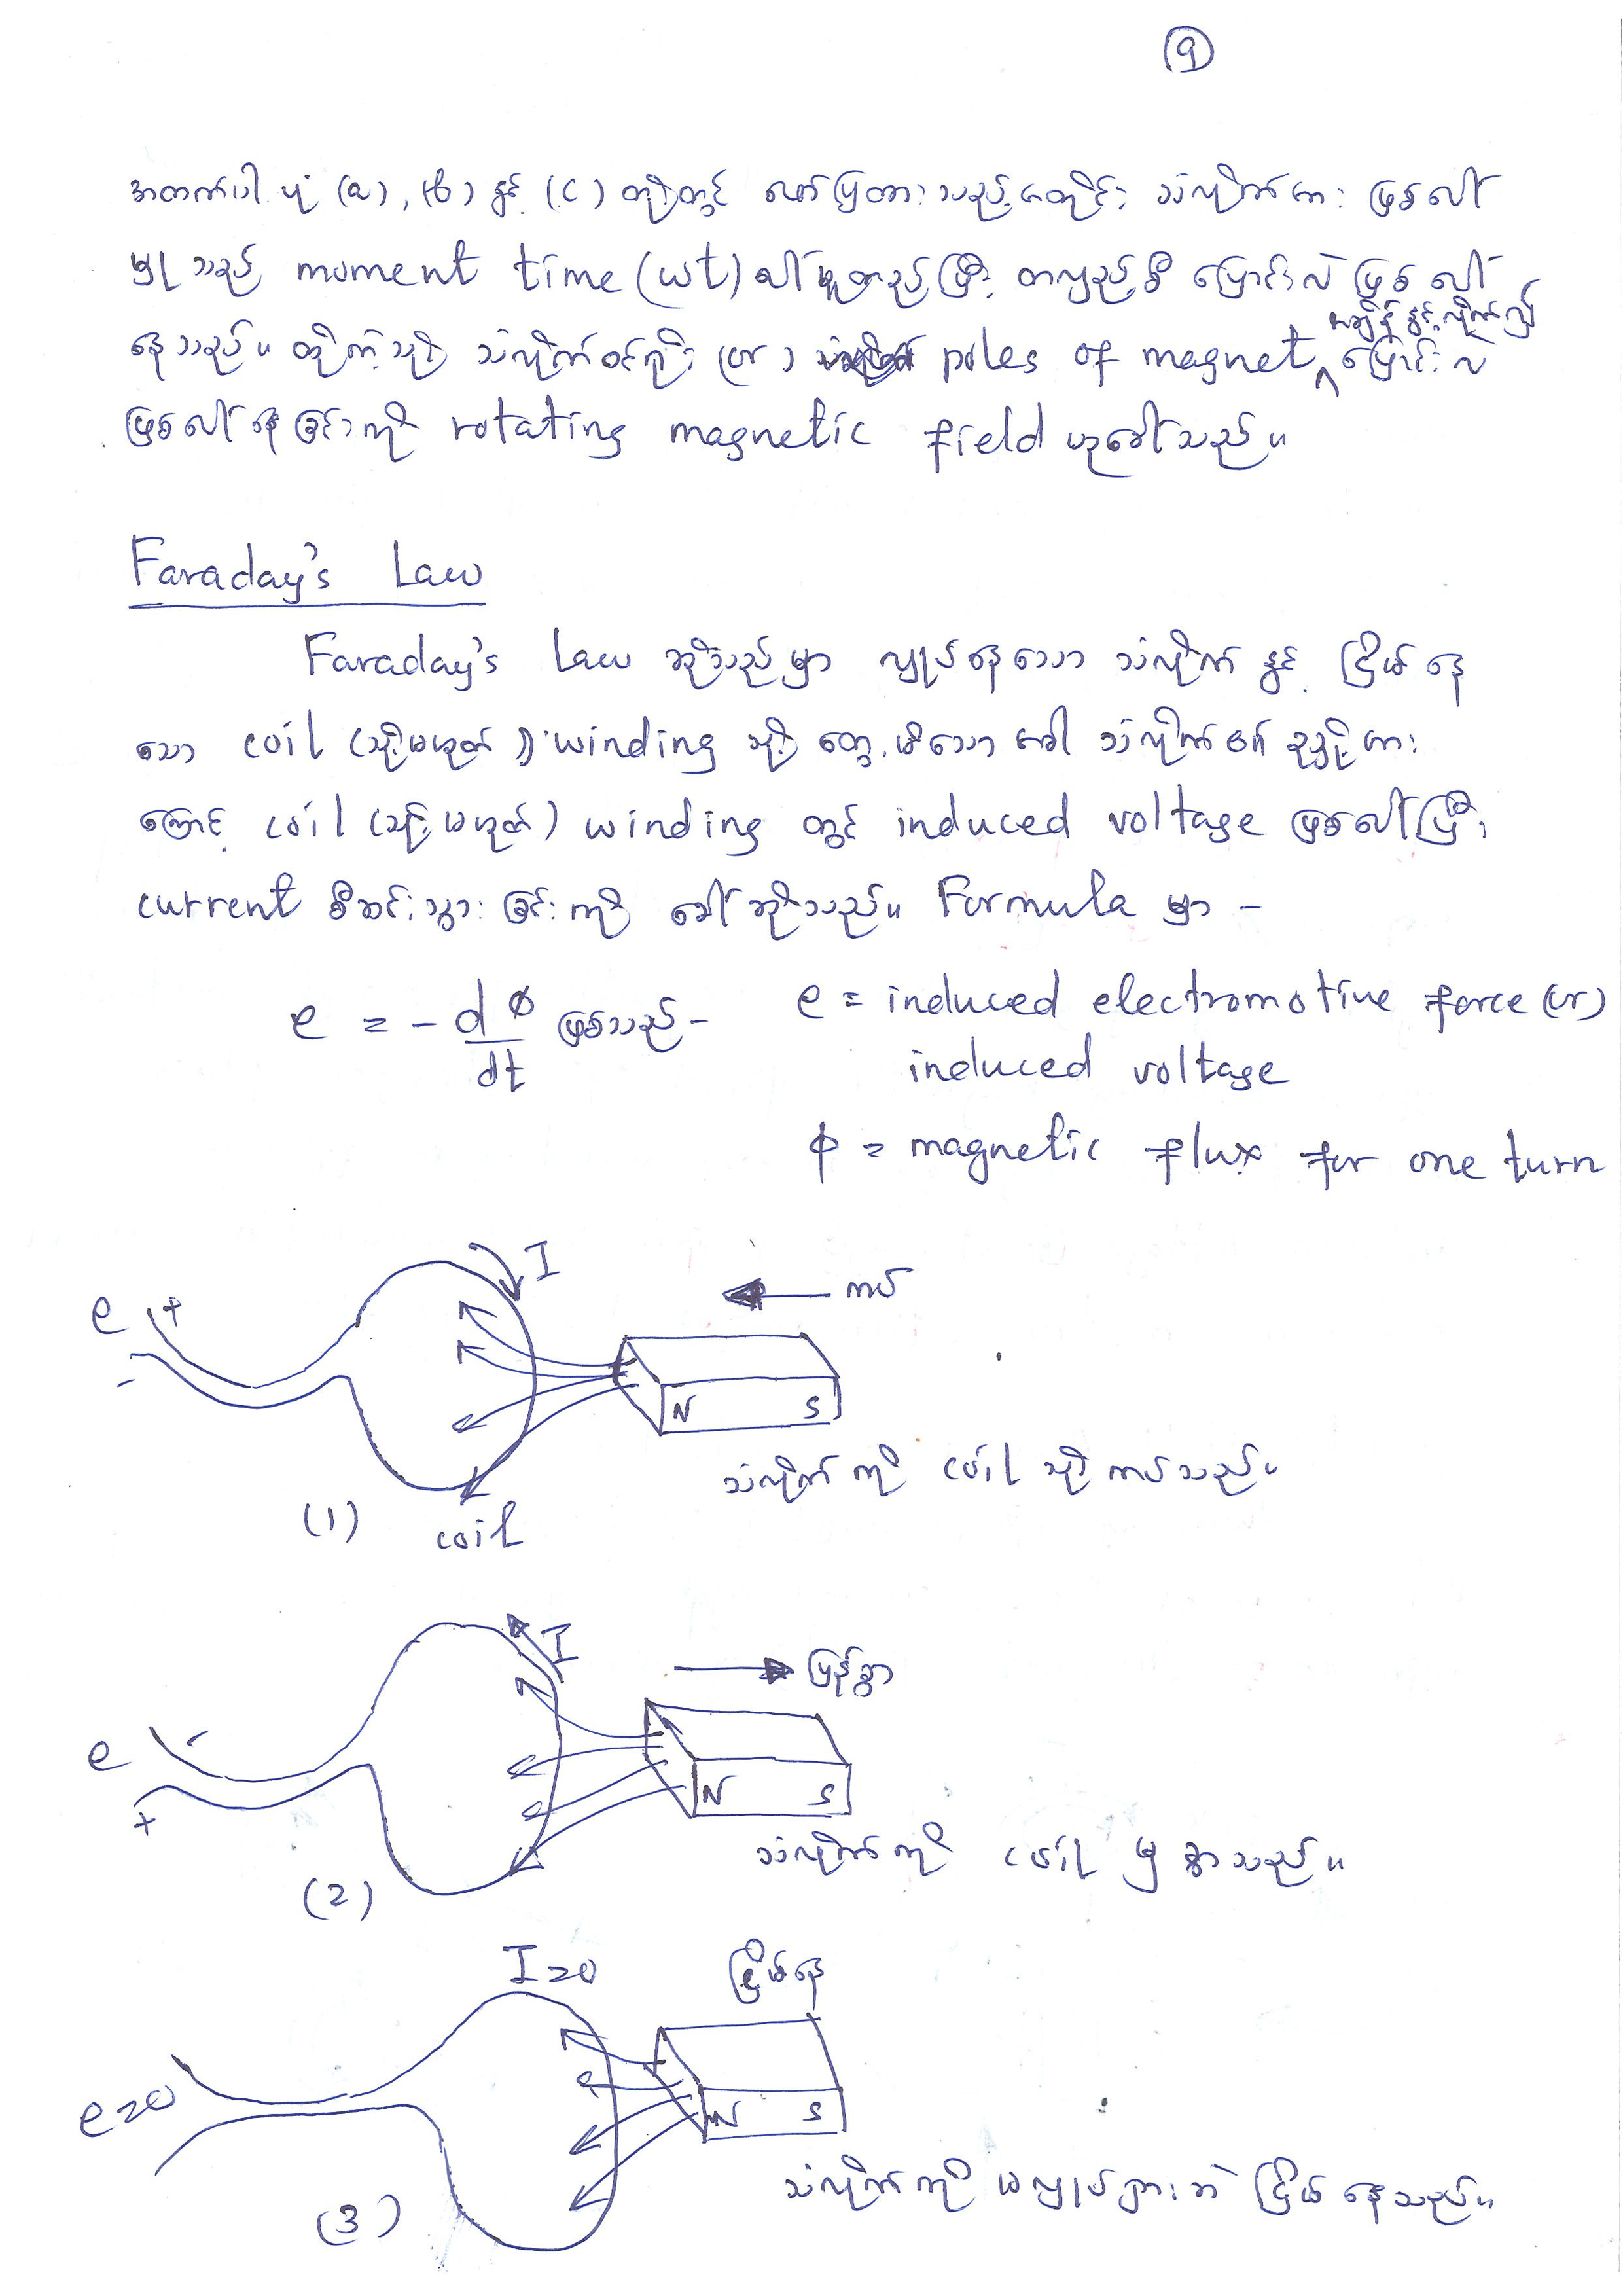 ၅
အထက်ပါ ပုံ (a), (b) နှင့် (c) တို့တွင် ဖော်ပြထား သည့်အတိုင်း သံလိုက်အား ဖြစ်ပေါ်
မှု သည် moment time (ωt) ပေါ်မူတည်ပြီး တလှည့်စီ ပြောင်းလဲ ဖြစ်ပေါ်
နေသည်။ ထိုကဲ့သို့ သံလိုက်ဝင်ရိုး (or) poles of magnet အချိန်နှင့်လိုက်၍ ပြောင်းလဲ
ဖြစ်ပေါ်နေခြင်းကို rotating magnetic field ဟုခေါ်သည်။
Faraday's Law
Faraday's Law ဆိုသည်မှာ လှုပ်နေသော သံလိုက် နှင့် ငြိမ်နေ
သော coil (သို့မဟုတ်) winding သို့ တွေ့မိသော အခါ သံလိုက်စက်
ကြောင့် coil (သို့မဟုတ်) winding တွင် induced voltage ဖြစ်ပေါ်ပြီး
current စီးဆင်းသွားခြင်းကို ခေါ်ဆိုသည်။ Formula မှာ -
e = - dφ/dt ဖြစ်သည် -
e = induced electromotive force (or)
induced voltage
φ = magnetic flux for one turn
I
e + -
ကပ်
N S
သံလိုက်ကို coil သို့ ကပ်သည်။
(1) coil
I
e - +
ပြန်ခွာ
N S
သံလိုက်ကို coil မှ ခွာသည်။
(2)
I=0
ငြိမ်နေ
e=0
N S
သံလိုက်ကို မလှုပ်ရှားဘဲ ငြိမ်နေသည်။
(3)